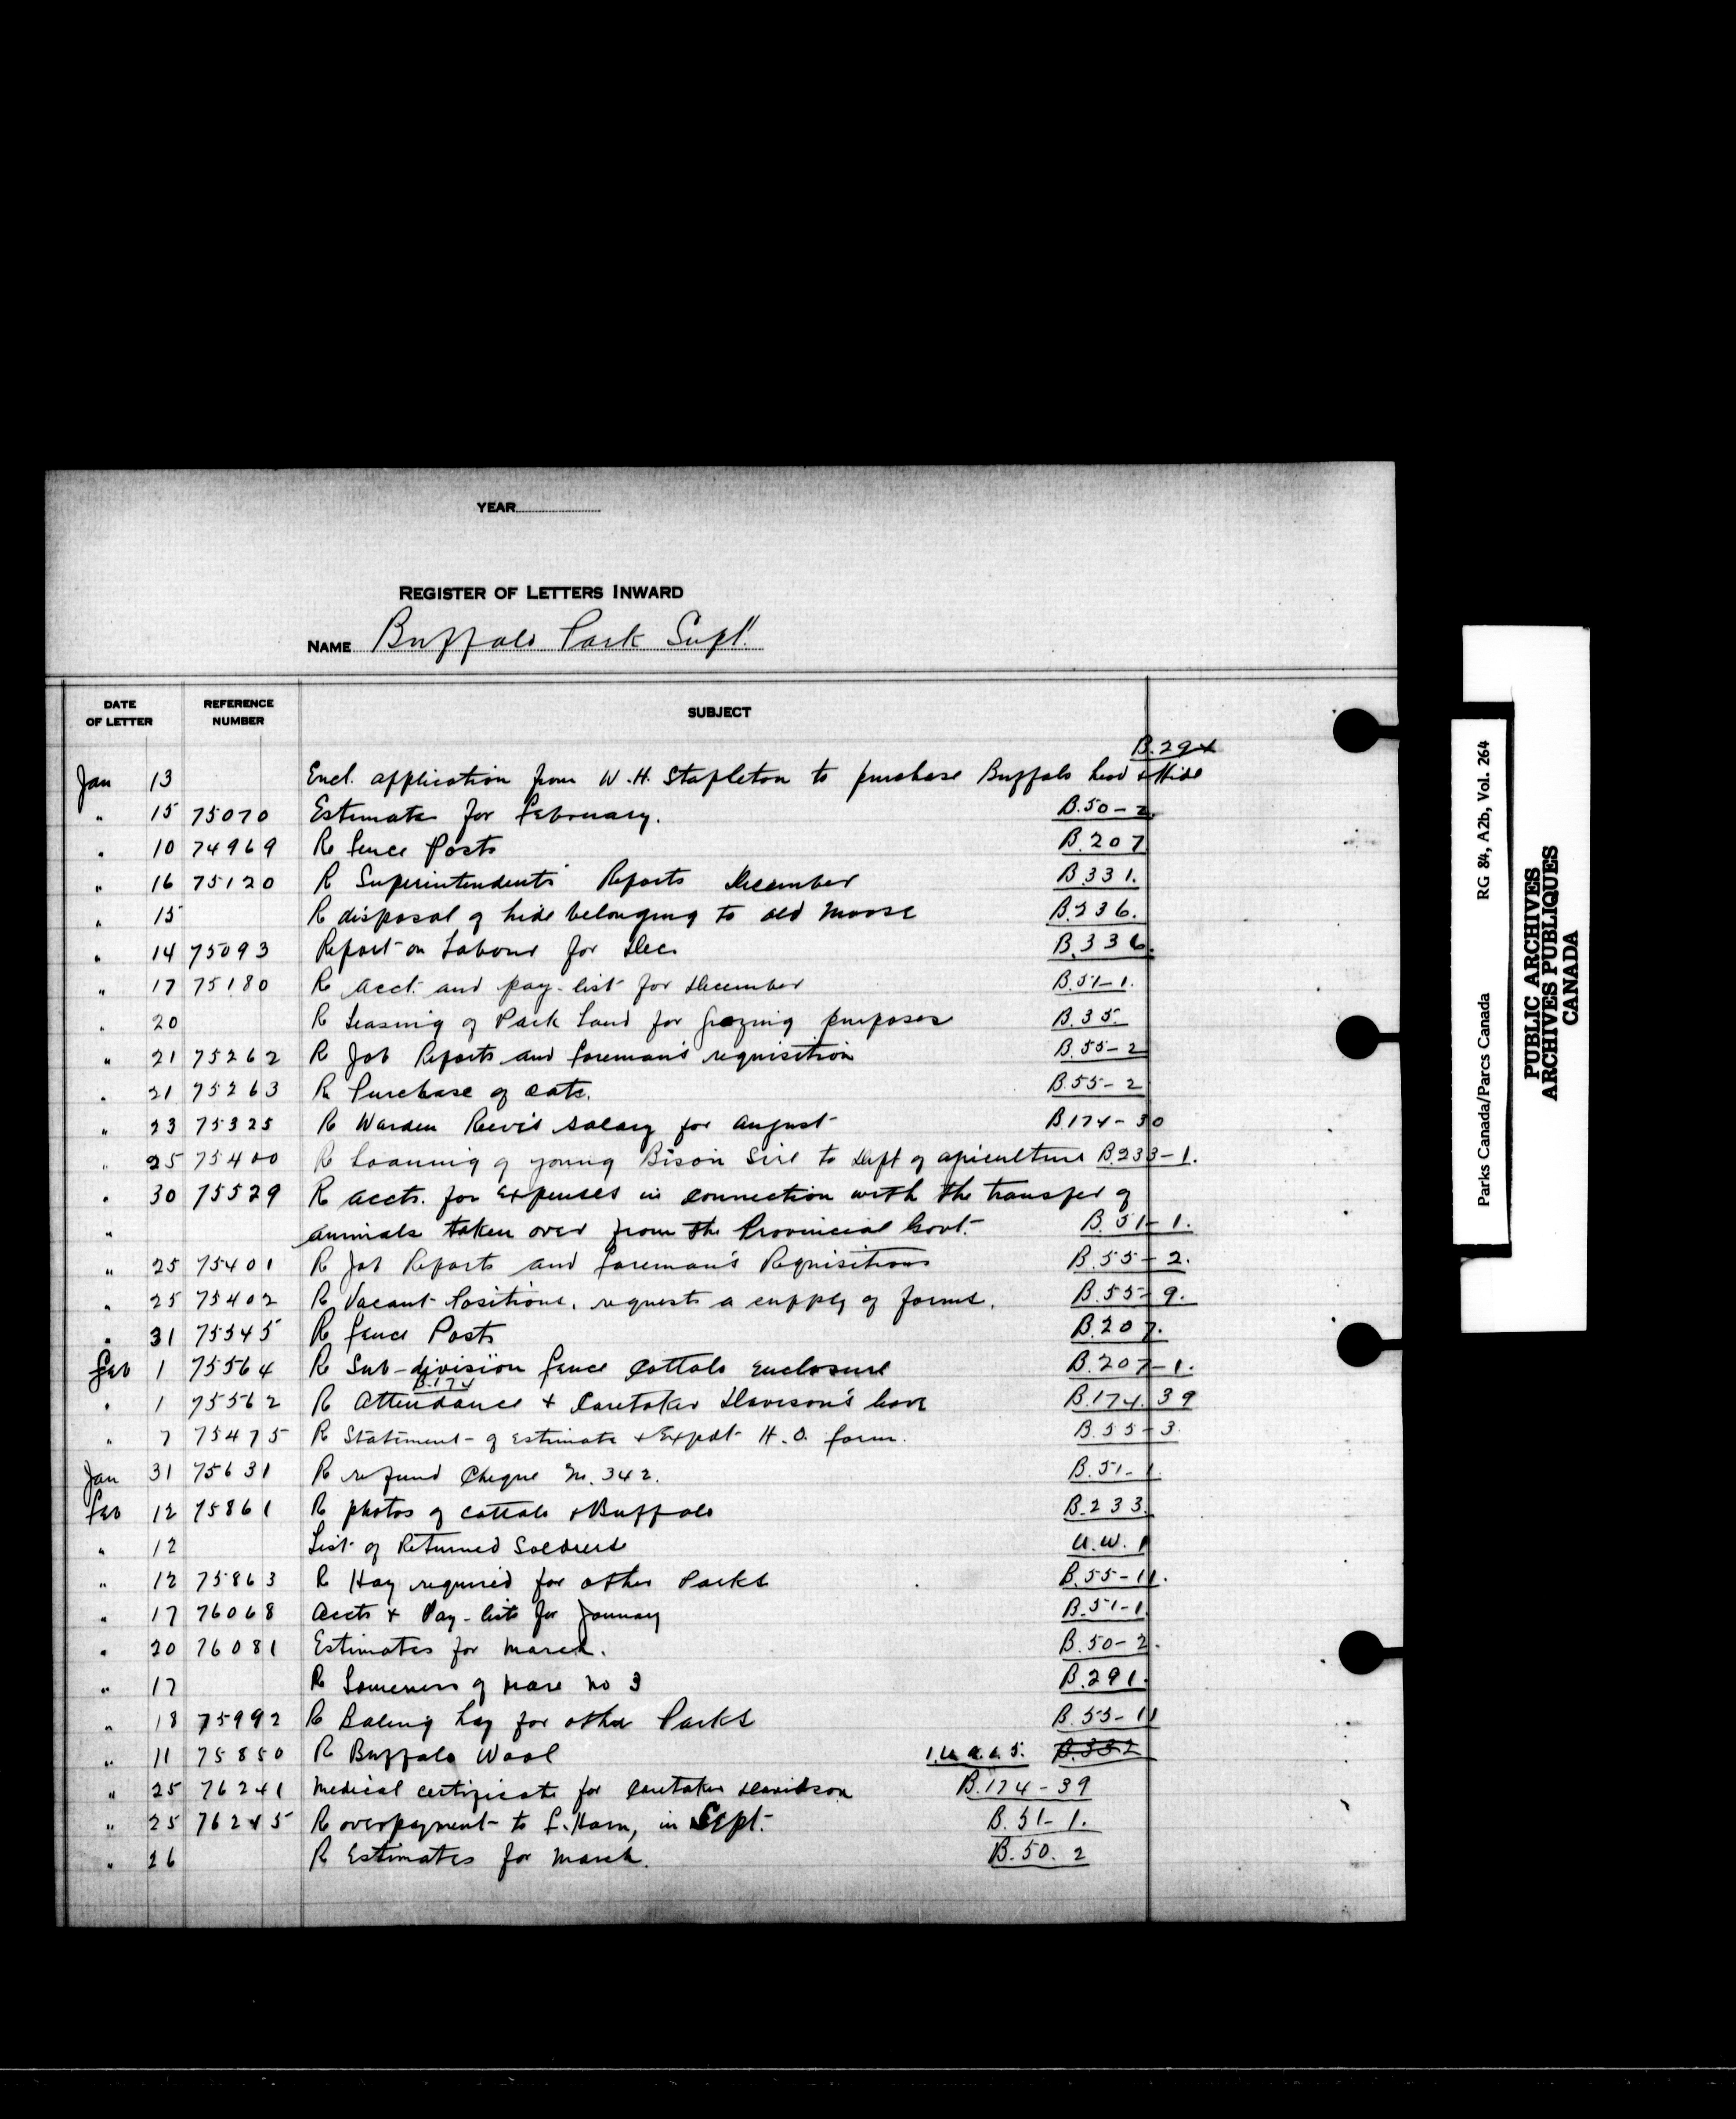 YEAR
REGISTER OF LETTERS INWARD
NAME Buffalo Park Supt.
DATE OF LETTER REFERENCE NUMBER SUBJECT
B.294
Jan 13 Encl. application from W.H. Stapleton to purchase Buffalo head & Hide
" 15 75070 Estimate for February. B.50-2.
" 10 74969 Re fence Posts B.207
" 16 75120 R Superintendents' Reports December B.331.
" 15 R disposal of hide belonging to old Moose B.236.
" 14 75093 Report on Labour for Dec. B.336.
" 17 75180 Re acct. and pay-list for December B.51-1.
" 20 R Leasing of Park Land for grazing purposes B.35.
" 21 75262 R Job Reports and foreman's requisition B.55-2
" 21 75263 R Purchase of oats. B.55-2
" 23 75325 R Warden salary for August B.174-30
" 25 75400 R Loaning of young Bison Sire to Dept of agriculture B.233-1.
" 30 75529 R accts. for expenses in connection with the transfer of
" animals taken over from the Provincial Govt. B.51-1.
" 25 75401 R Job Reports and foreman's Requisitions B.55-2.
" 25 75402 R Vacant Positions, requests a supply of forms. B.55-9.
" 31 75545 R fence Posts B.207.
Feb 1 75564 R Sub-division fence Cattalo Enclosure B.207-1.
B.174
" 1 75562 R Attendance & Caretaker Davison's leave B.174.39
" 7 75475 R Statement of Estimate & Expdt H.O. form. B.55-3.
Jan 31 75631 R refund Cheque No. 342. B.51-1.
Feb 12 75861 R photos of cattalo & Buffalo B.233.
" 12 List of Returned Soldiers U.W. 1
" 12 75863 R Hay required for other Parks B.55-11.
" 17 76068 Accts & Pay-lists for January B.51-1
" 20 76081 Estimates for March. B.50-2.
" 17 R Lameness of Mare No 3 B.291.
" 18 75992 R Baling hay for other Parks B.55-11
" 11 75850 R Buffalo Wool B.332
" 25 76241 Medical certificate for Caretaker Davidson B.174-39
" 25 76245 R overpayment to F. Ham, in Sept. B.51-1.
" 26 R Estimates for March. B.50.2
Parks Canada/Parcs Canada RG 84, A2b, Vol. 264
PUBLIC ARCHIVES
ARCHIVES PUBLIQUES
CANADA